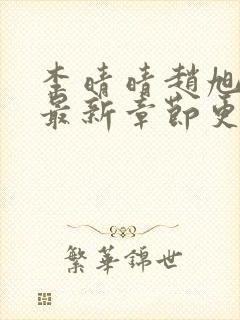 李晴晴趙旭
最新章節更
繁華錦世